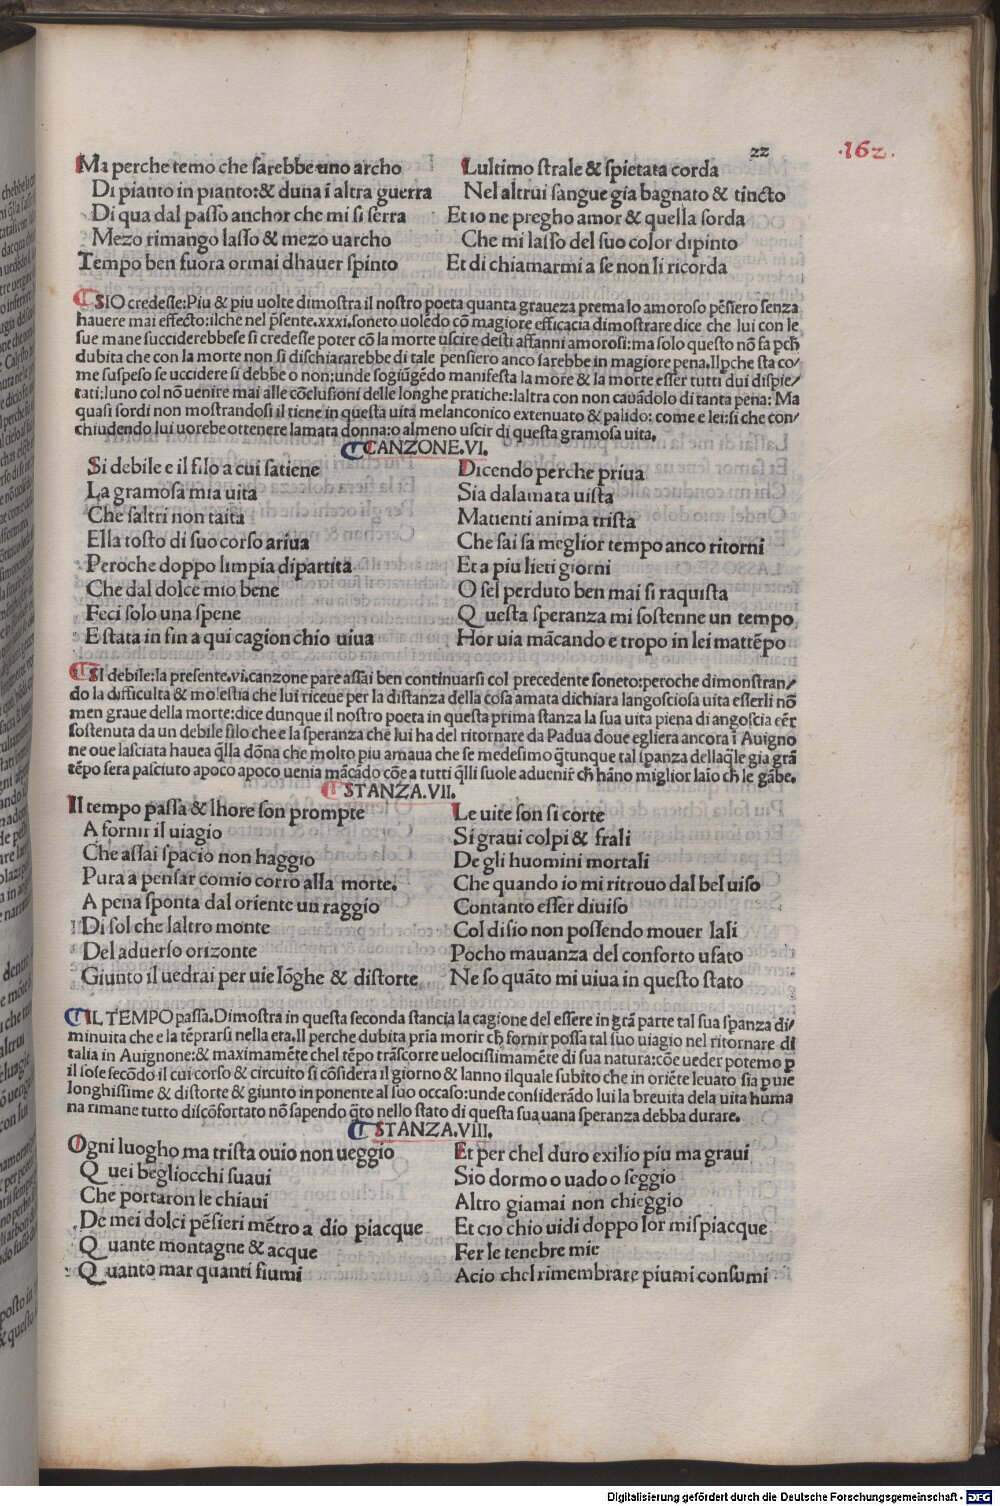 22
.162.
Ma perche temo che ſarebbe uno archo
Di pianto in pianto:& duna ī altra guerra
Di qua dal paſſo anchor che mi ſi ſerra
Mezo rimango laſſo & mezo uarcho
Tempo ben fuora ormai dhauer ſpinto
Lultimo ſtrale & ſpietata corda
Nel altrui ſangue gia bagnato & tincto
Et io ne pregho amor & quella ſorda
Che mi laſſo del ſuo color dipinto
Et di chiamarmi a ſe non li ricorda
SIO credeſſe:Piu & piu uolte dimoſtra il noſtro poeta quanta graueza prema lo amoroſo pēſiero ſenza
hauere mai effecto:ilche nel p̄ſente.xxxi.ſoneto uolēdo cō magiore efficacia dimoſtrare dice che lui con le
ſue mane ſucciderebbeſe ſi credeſſe poter cō la morte uſcire deſti affanni amoroſi:ma ſolo queſto nō fa pch̄
dubita che con la morte non ſi diſchiararebbe di tale penſiero anco ſarebbe in magiore pena.Ilpche ſta co/
me ſuſpeſo ſe uccidere ſi debbe o non:unde ſogiūgēdo manifeſta la more & la morte eſſer tutti dui diſpie/
tati:luno col nō uenire mai alle cōcluſioni delle longhe pratiche:laltra con non cauādolo di tanta pena: Ma
quaſi ſordi non moſtrandoſi il tiene in queſta uita melanconico extenuato & palido: come e lei:ſi che con/
chiudendo lui uorebe ottenere lamata donna:o almeno uſcir di queſta gramoſa uita.
CANZONE.VI.
Si debile e il filo a cui ſatiene
La gramoſa mia uita
Che ſaltri non taita
Ella toſto di ſuo corſo ariua
Peroche doppo limpia dipartita
Che dal dolce mio bene
Feci ſolo una ſpene
E ſtata in fin a qui cagion chio uiua
Dicendo perche priua
Sia dalamata uiſta
Matienti anima triſta
Che ſai ſa meglior tempo anco ritorni
Et a piu lieti giorni
O ſel perduto ben mai ſi raquiſta
Q ueſta ſperanza mi ſoſtenne un tempo
Hor uia mācando e tropo in lei mattēpo
SI debile:la preſente.vi.canzone pare aſſai ben continuarſi col precedente ſoneto:peroche dimonſtran/
do la difficulta & moleſtia che lui riceue per la diſtanza della coſa amata dichiara langoſcioſa uita eſſerli nō
men graue della morte:dice dunque il noſtro poeta in queſta prima ſtanza la ſua uita piena di angoſcia eēr
ſoſtenuta da un debile filo che e la ſperanza che lui ha del ritornare da Padua doue egliera ancora ī Auigno
ne oue laſciata hauea q̄lla dōna che molto piu amaua che ſe medeſimo q̄tunque tal ſpanza dellaq̄le gia grā
tēpo ſera paſciuto apoco apoco uenia mācādo cōe a tutti q̄lli ſuole aduenir̄ ch̄ hāno miglior laio ch̄ le gābe.
STANZA.VII.
Il tempo paſſa & lhore ſon prompte
A fornir il uiagio
Che aſſai ſpacio non haggio
Pura a penſar comio corro alla morte.
A pena ſponta dal oriente un raggio
Di ſol che laltro monte
Del aduerſo orizonte
Giunto il uedrai per uie lōghe & diſtorte
Le uite ſon ſi corte
Si graui colpi & frali
De gli huomini mortali
Che quando io mi ritrouo dal bel uiſo
Contanto eſſer diuiſo
Col diſio non poſſendo mouer lali
Pocho mauanza del conforto uſato
Ne ſo quāto mi uiua in queſto ſtato
IL TEMPO paſſa.Dimoſtra in queſta ſeconda ſtancia la cagione del eſſere in grā parte tal ſua ſpanza di/
minuita che e la tēprarſi nella eta.Il perche dubita pria morir ch̄ fornir poſſa tal ſuo uiagio nel ritornare di
talia in Auignone:& maximamēte chel tēpo trāſcorre uelociſſimamēte di ſua natura:cōe ueder potemo p
il ſole ſecōdo il cui corſo & circuito ſi cōſidera il giorno & lanno ilquale ſubito che in oriēte leuato ſia p uie
longhiſſime & diſtorte & giunto in ponente al ſuo occaſo:unde conſiderādo lui la breuita dela uita huma
na rimane tutto diſcōfortato nō ſapendo q̄to nello ſtato di queſta ſua uana ſperanza debba durare.
STANZA.VIII.
Ogni luogho ma triſta ouio non ueggio
Q uei begliocchi ſuaui
Che portaron le chiaui
De mei dolci pēſieri mētro a dio piacque
Q uante montagne & acque
Q uanto mar quanti fiumi
Et per chel duro exilio piu ma graui
Sio dormo o uado o ſeggio
Altro giamai non chieggio
Et cio chio uidi doppo lor miſpiacque
Fer le tenebre mie
Acio chel rimembrare piu mi conſumi
Digitalisierung gefördert durch die Deutsche Forschungsgemeinschaft - DFG